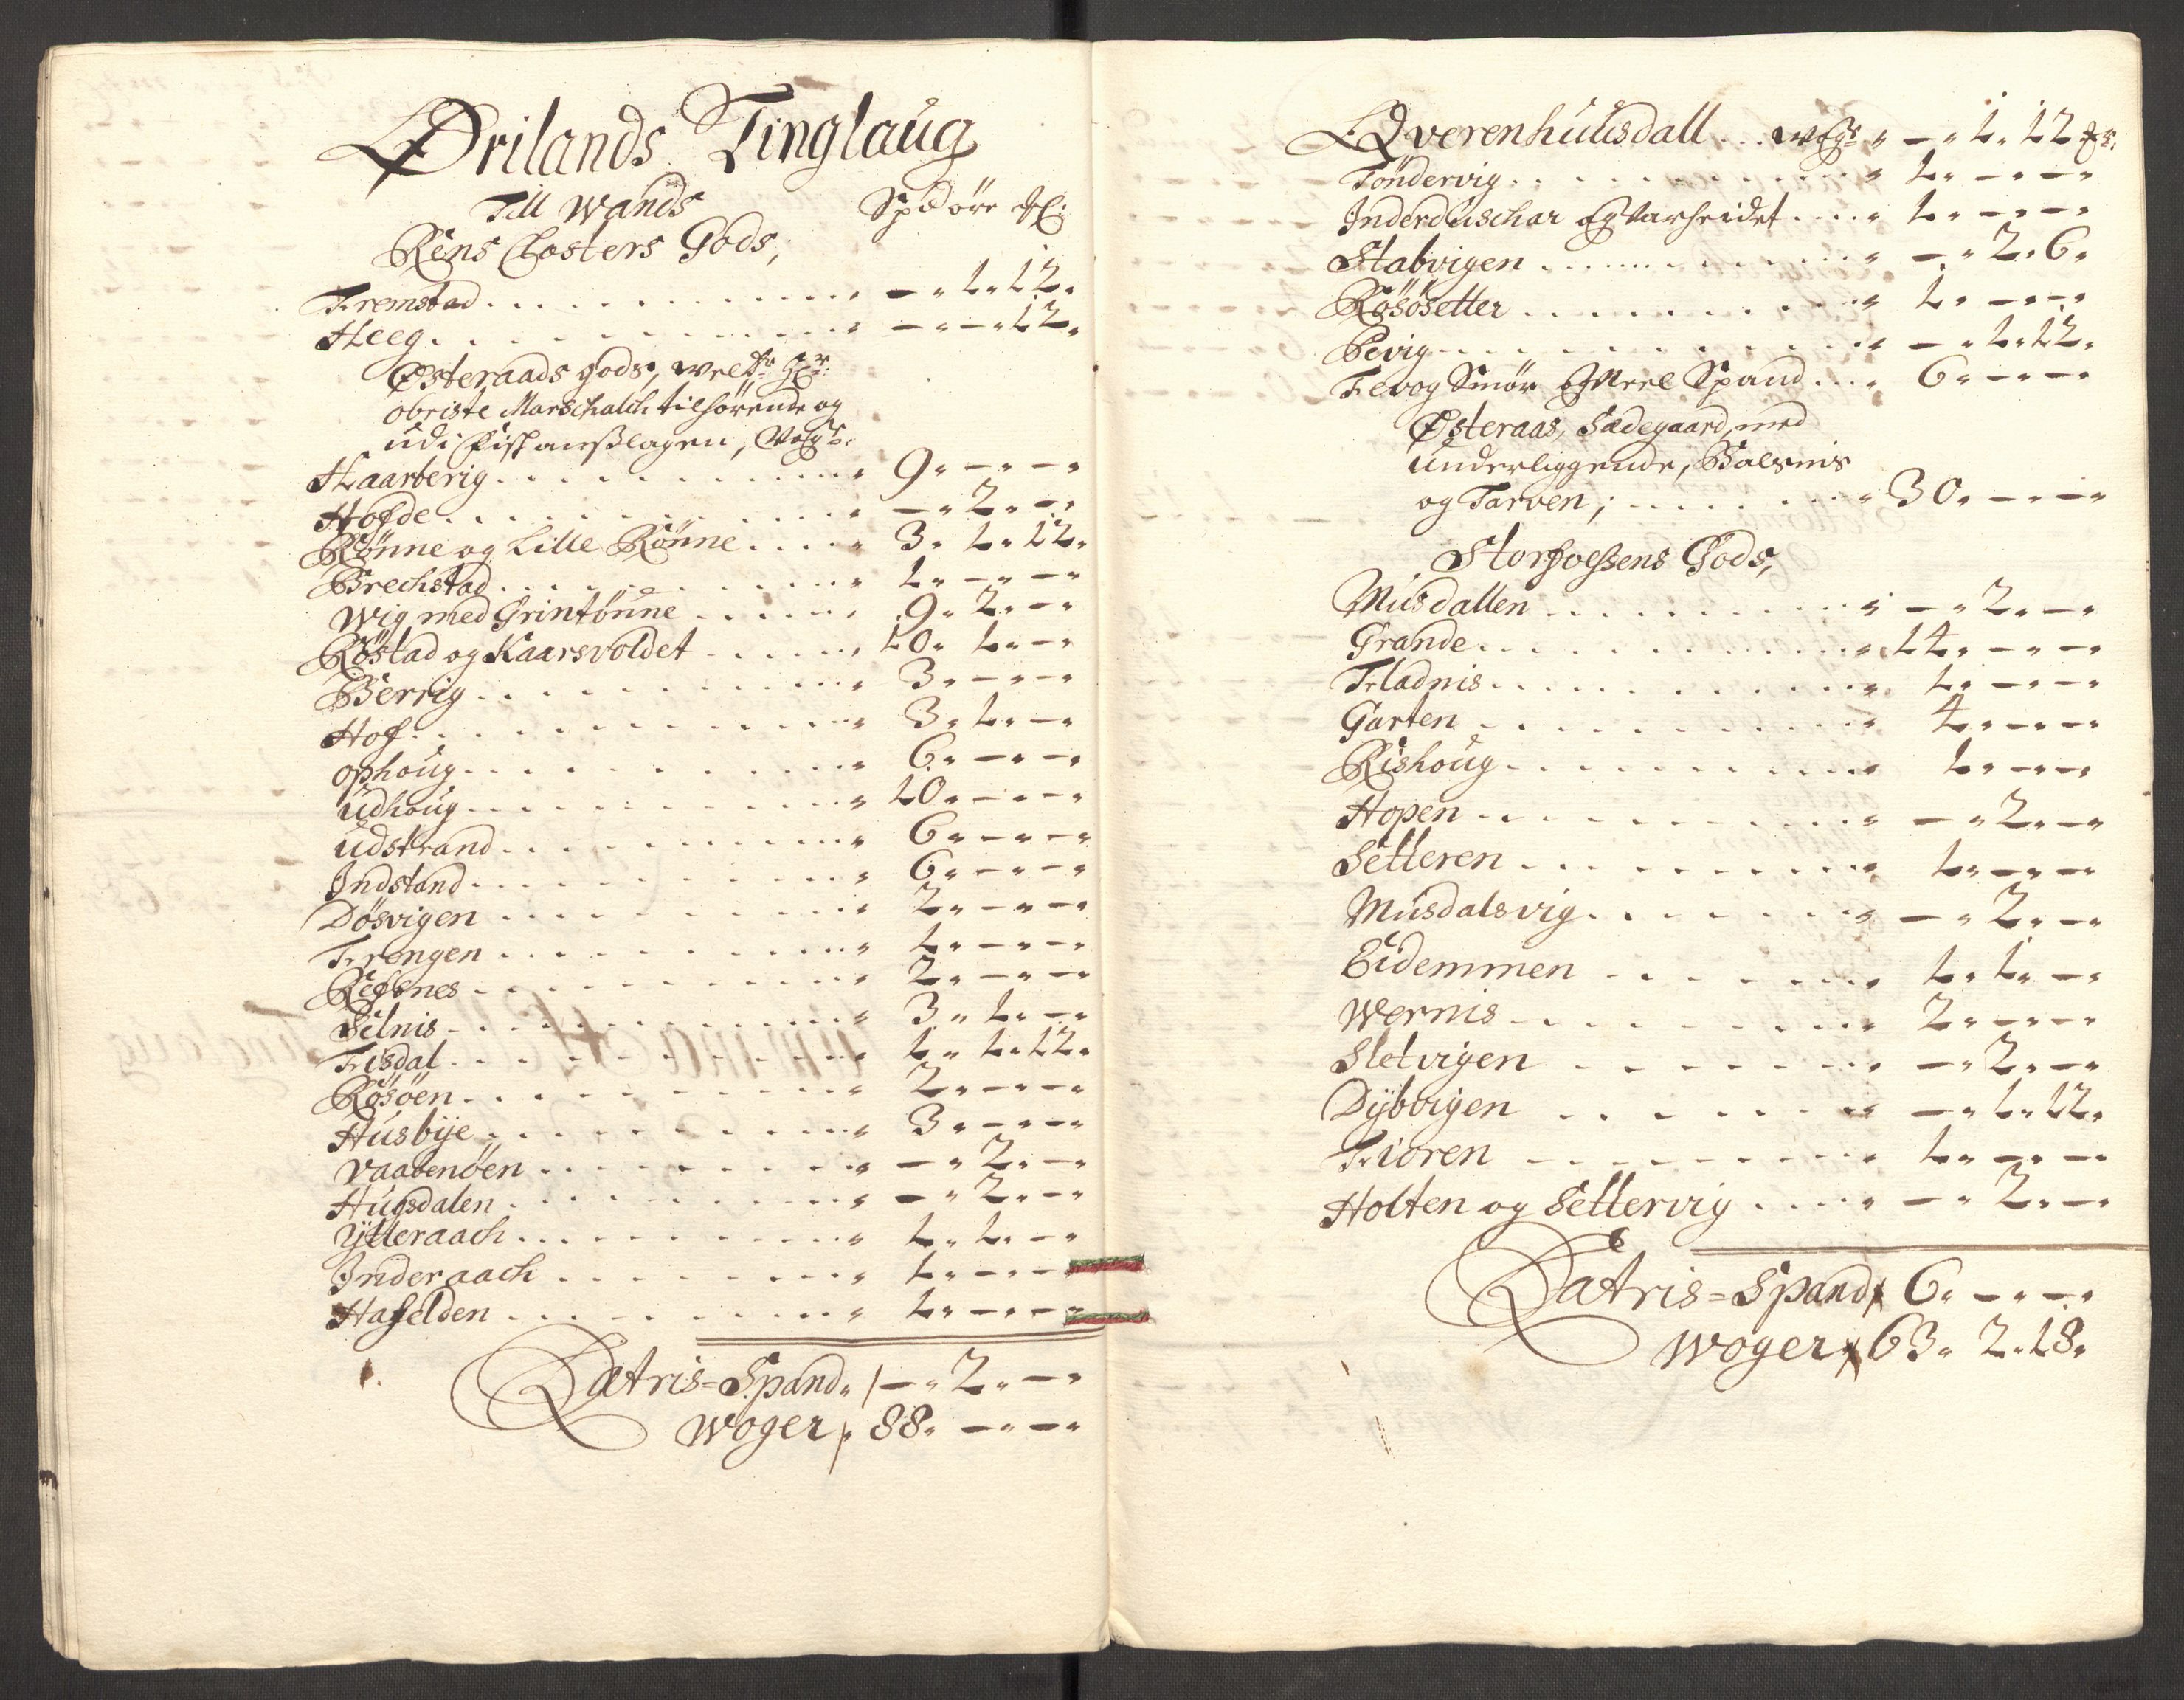 Ørilands Tinglaug
Till Wands Spd öre
Reins Closters Gods,
Fremstad . . . — „ 1 „ 12 „
Heeg . . . — „ — „ 12 „
Østeraads gods,
obriste Marschalch tilhörende og
udi
Haarberig . . . 9 „ — „ —
Hofde . . . — „ 2 „ —
Rönne og Lille Rönne . . . 3 „ 1 „ 12 „
Brechstad . . . 1 „ — „ —
Wig med Grintönne . . . 9 „ 2 „ —
Röstad og Kaarsvoldet . . . 10 „ 1 „ —
Berrig . . . 3 „ — „ —
Hof . . . 3 „ 1 „ —
ophoug . . . 6 „ — „ —
Udhoug . . . 10 „ — „ —
Udstrand . . . 6 „ — „ —
Indstand . . . 6 „ — „ —
Dösvigen . . . 2 „ — „ —
Frengen . . . 1 „ — „ —
Refsnes . . . 2 „ — „ —
Selnis . . . 3 „ 1 „ —
Frisdal . . . 1 „ 1 „ 12 „
Rösöen . . . 2 „ — „ —
Husbye . . . 3 „ — „ —
Vaabenöen . . . — „ 2 „ —
Hugsdalen . . . — „ 2 „ —
Ytteraach . . . 1 „ 1 „ —
Inderaach . . . 1 „ — „ —
Hafelden . . . 1 „ — „ —
Latris = Spand „ — „ 2 „ —
Woger „ 88 „ — „ —
Qverenhuusdall . . . — „ 1 „ 12
Töndervig . . . 1 „ — „ —
Inderduschar og . . . 1 „ — „ —
Stabvigen . . . — „ 2 „ 6 „
Rösösetter . . . 1 „ — „ —
Pevig . . . — „ 1 „ 12 „
Fevog Smör og Meel Spand . . . 6 „ — „ —
Østeraas, Sædegaard, med
underliggende, Balsnis
og Tarven; . . . 30 „ — „ —
Storfosens Gods,
Musdallen . . . — „ 2 „ —
Grande . . . 14 „ — „ —
Fladnis . . . 1 „ — „ —
Garten . . . 4 „ — „ —
Rishoug . . . 1 „ — „ —
Hopen . . . — „ 2 „ —
Setteren . . . 1 „ — „ —
Musdalsvig . . . — „ 2 „ —
Eidemmen . . . 1 „ 1 „ —
Wernis . . . 2 „ — „ —
Sletvigen . . . — „ 2 „ —
Dybvigen . . . — „ 1 „ 12 „
Fioren . . . 1 „ — „ —
Holten og Settervig . . . — „ 2 „ —
Latris = Spand 6 „ — „ —
Woger 63 „ 2 „ 18 „